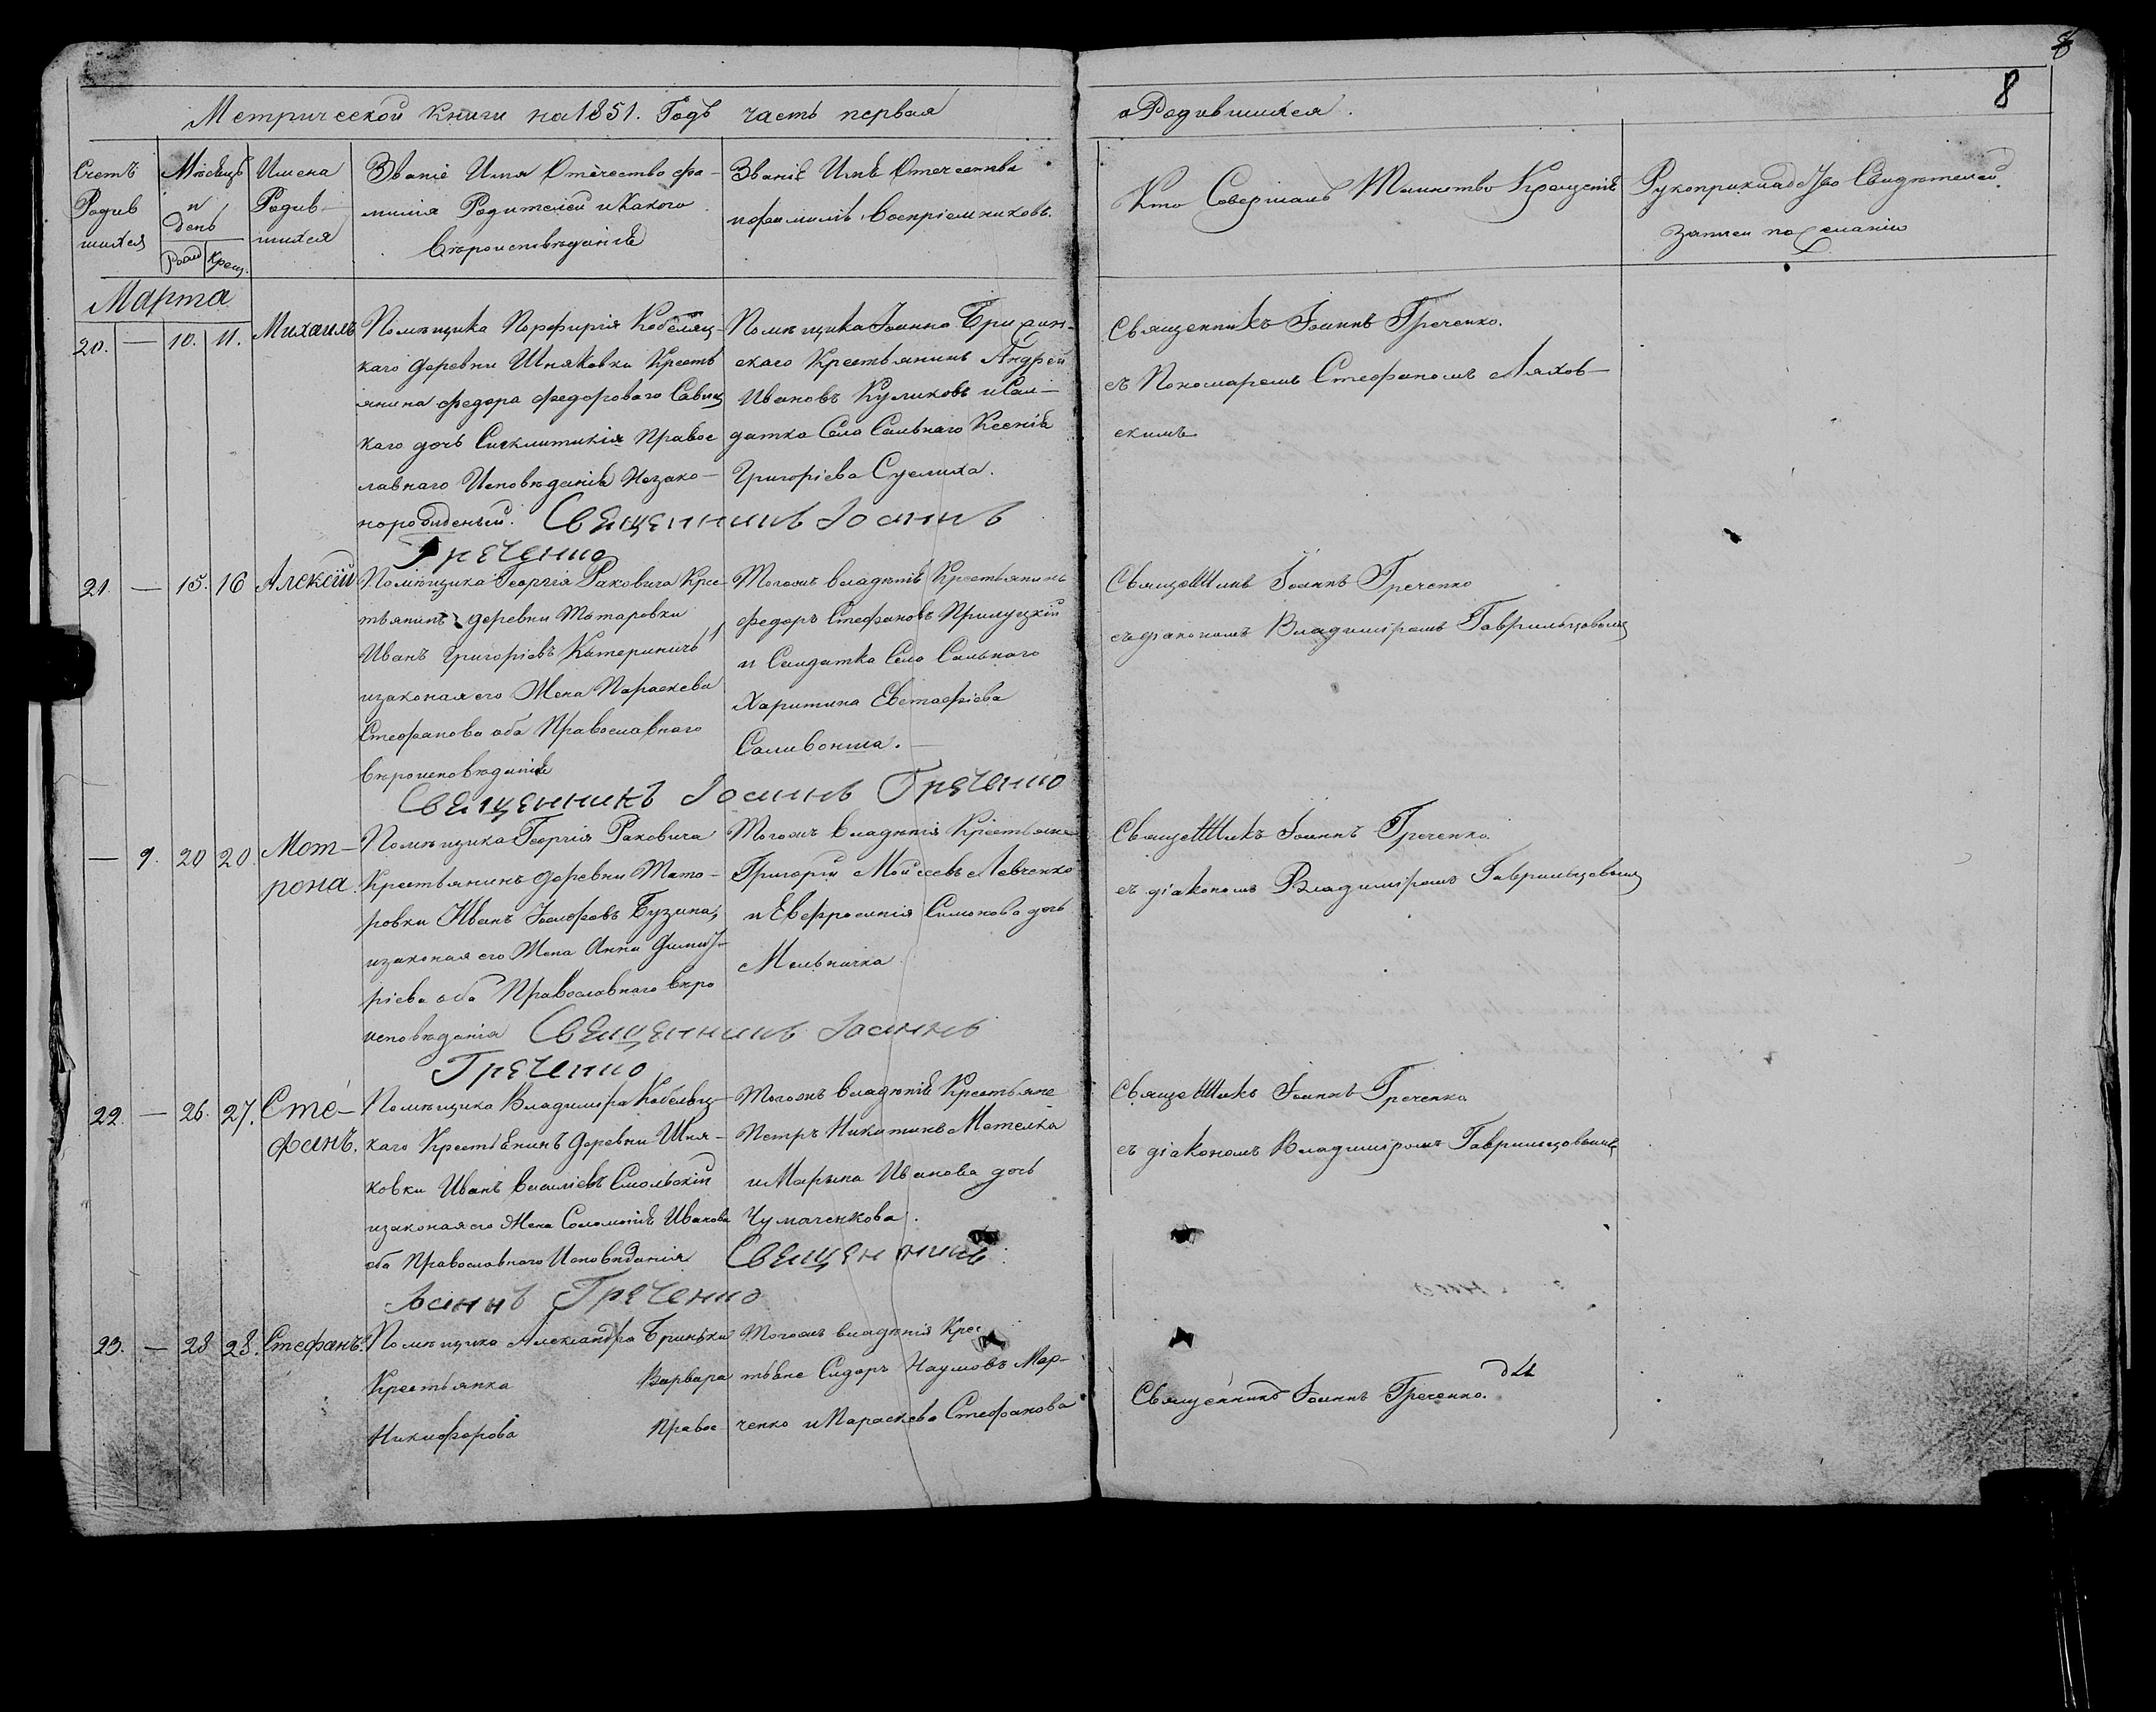 8
8
Метрической Книги на 1851. Годъ часть первая
о Родившихся.
Счетъ Родившихся
Мѣсяцъ и день
Рожд Крещ.
Имена Родившихся
Званіе Имя Отчество фа-
милія Родителей и Какого
Вѣроисповѣданія
Званіе Имя Отчество
и фамилія Воспріемниковъ.
Кто Совершалъ Таинство Крещенія
Рукоприкладство Свидѣтелей
записи по желанію
Марта
20. — 10. 11. Михаилъ
Помѣщика Порфирія Кобеляц-
каго деревни Шняковки Кресть
янина федора федорового Савиц
каго дочь Синклитикія Правос
лавнаго Исповѣданія Незако-
норожденый. Священникъ Іоаннъ
Греченко
Помѣщика Іоанна
скаго Крестьянинъ Андрей
Ивановъ Куликовъ и Сол-
датка Села Сального Ксенія
Григоріева Суслиха.
Священникъ Іоаннъ Греченко.
съ Пономаремъ Стефаномъ Ляхов-
скимъ
21. — 15. 16 Алексій
Помѣщика Георгія Раковича Крес-
тьянинъ деревни Татаровки
Иванъ Григоріевъ Катериничъ
и законая его Жена Параскева
Стефанова оба Православнаго
вѣроисповѣданія
Священникъ Іоаннъ Греченко
Тогожъ владѣнія Крестьянинъ
федоръ Стефановъ Прилуцкій
и Солдатка Села Сального
Харитина Евстафіева
Саливониха.
Священникъ Іоаннъ Греченко
съ діакономъ Владиміромъ Гаврильцовымъ
— 9. 20 20. Мот-
рона.
Помѣщика Георгія Раковича
Крестьянинъ деревни Тата-
ровки Иванъ Іосифовъ Бузина,
и законая его Жена Анна Дмит-
ріева оба Православнаго вѣро
исповѣданія Священникъ Іоаннъ
Греченко
Тогожъ владѣнія Крестьяне
Григорій Мойсеевъ Левченко
и Евфросинія Симонова дочь
Мельничка.
Священникъ Іоаннъ Греченко.
съ діакономъ Владиміромъ Гаврильцовымъ
22. — 26. 27. Сте-
фанъ.
Помѣщика Владиміра Кобеляц-
каго Крестьянинъ деревни Шня-
ковки Иванъ Василіевъ Смольскій
и законая его Жена Соломонія Иванова
оба Православнаго Исповѣданія Священникъ
Іоаннъ Греченко
Тогожъ владѣнія Крестьяне
Петръ Никитинъ Метелка
и Марѣна Иванова дочь
Чумаченкова.
Священникъ Іоаннъ Греченко
съ діакономъ Владиміромъ Гаврильцовымъ
23. — 28 28. Стефанъ.
Помѣщика Александра Бриньки
Крестьянка Варвара
Никифорова Правос
Тогожъ владѣнія Крес
тьяне Сидоръ Наумовъ Мар-
ченко и Параскева Стефанова
Священникъ Іоаннъ Греченко.